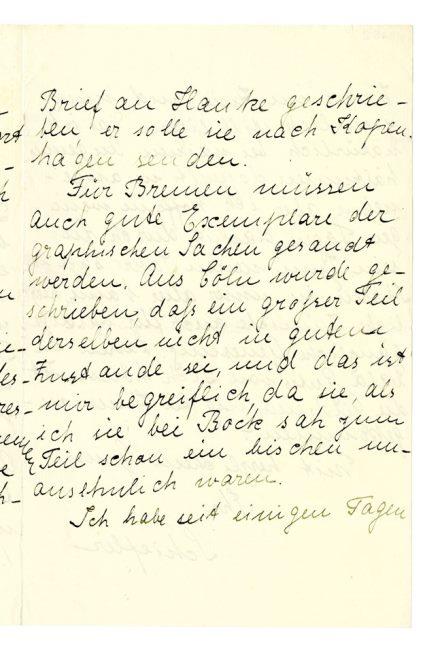 Brief an Hauke geschrie-
ben er solle sie nach Kopen-
hagen senden.
Für Bremen müssen
auch gute Exemplare der
graphischen Sachen gesandt
werden. Aus Cöln wurde ge-
schrieben, daß ein großer Teil
derselben nicht in gutem
Zustande sei, und das ist
mir begreiflich, da sie, als
ich sie bei Bock sah zum
Teil schon ein bischen un-
ansehnlich waren.
Ich habe seit einigen Tagen